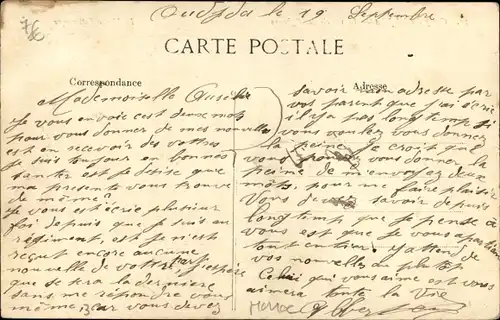 7€
Oudjda le 19 Septembre
CARTE POSTALE
Correspondance
Adresse
Mademoiselle
Je vous envoie cest deux mots
pour vous donner de mes nouvelles
est en recevoir des vottres
Je suis toujour en bonnes
santer est je désise que
ma presente vous trouve
de même
Je vous est écrie plusieur
fois depuis que je suis au
régiment, est je n'est
reçut encore aucune
nouvelle de vottre part j'espère
que se sera la dernière
sans me répondre vous
même, car vous devez
savoir mon adresse par
vos parent que j'ai écrie
il y a pas longtemp si
vous voulez vous donnez
la peine je croit que
vous pouvez vous donner la
peine de m'envoyez deux
mots, pour me faire plaisir
Vous devez savoir depuis
longtemp que je pense à
vous est que je vous
tout entier. J'attend de
vos nouvelles au plutot
Celui qui vous aime est vous
aimera toute la Vie
MAROC